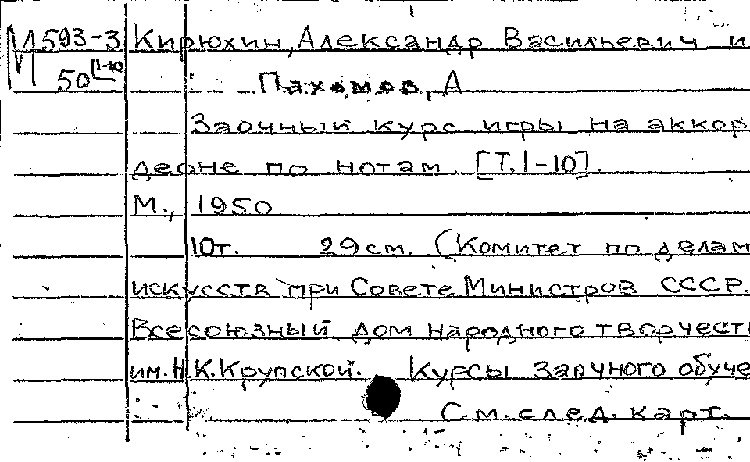 М593-3 Кирюхин, Александр Васильевич и
50 [1-10] Пахомов, А
Заочный курс игры на аккор
деоне по нотам [Т.1-10].
М., 1950
10т. 29 см. (Комитет по делам
искусств при Совете Министров СССР.
Всесоюзный дом народного творчест
им. Н.К.Крупской. Курсы заочного обуче
См. след. карт.